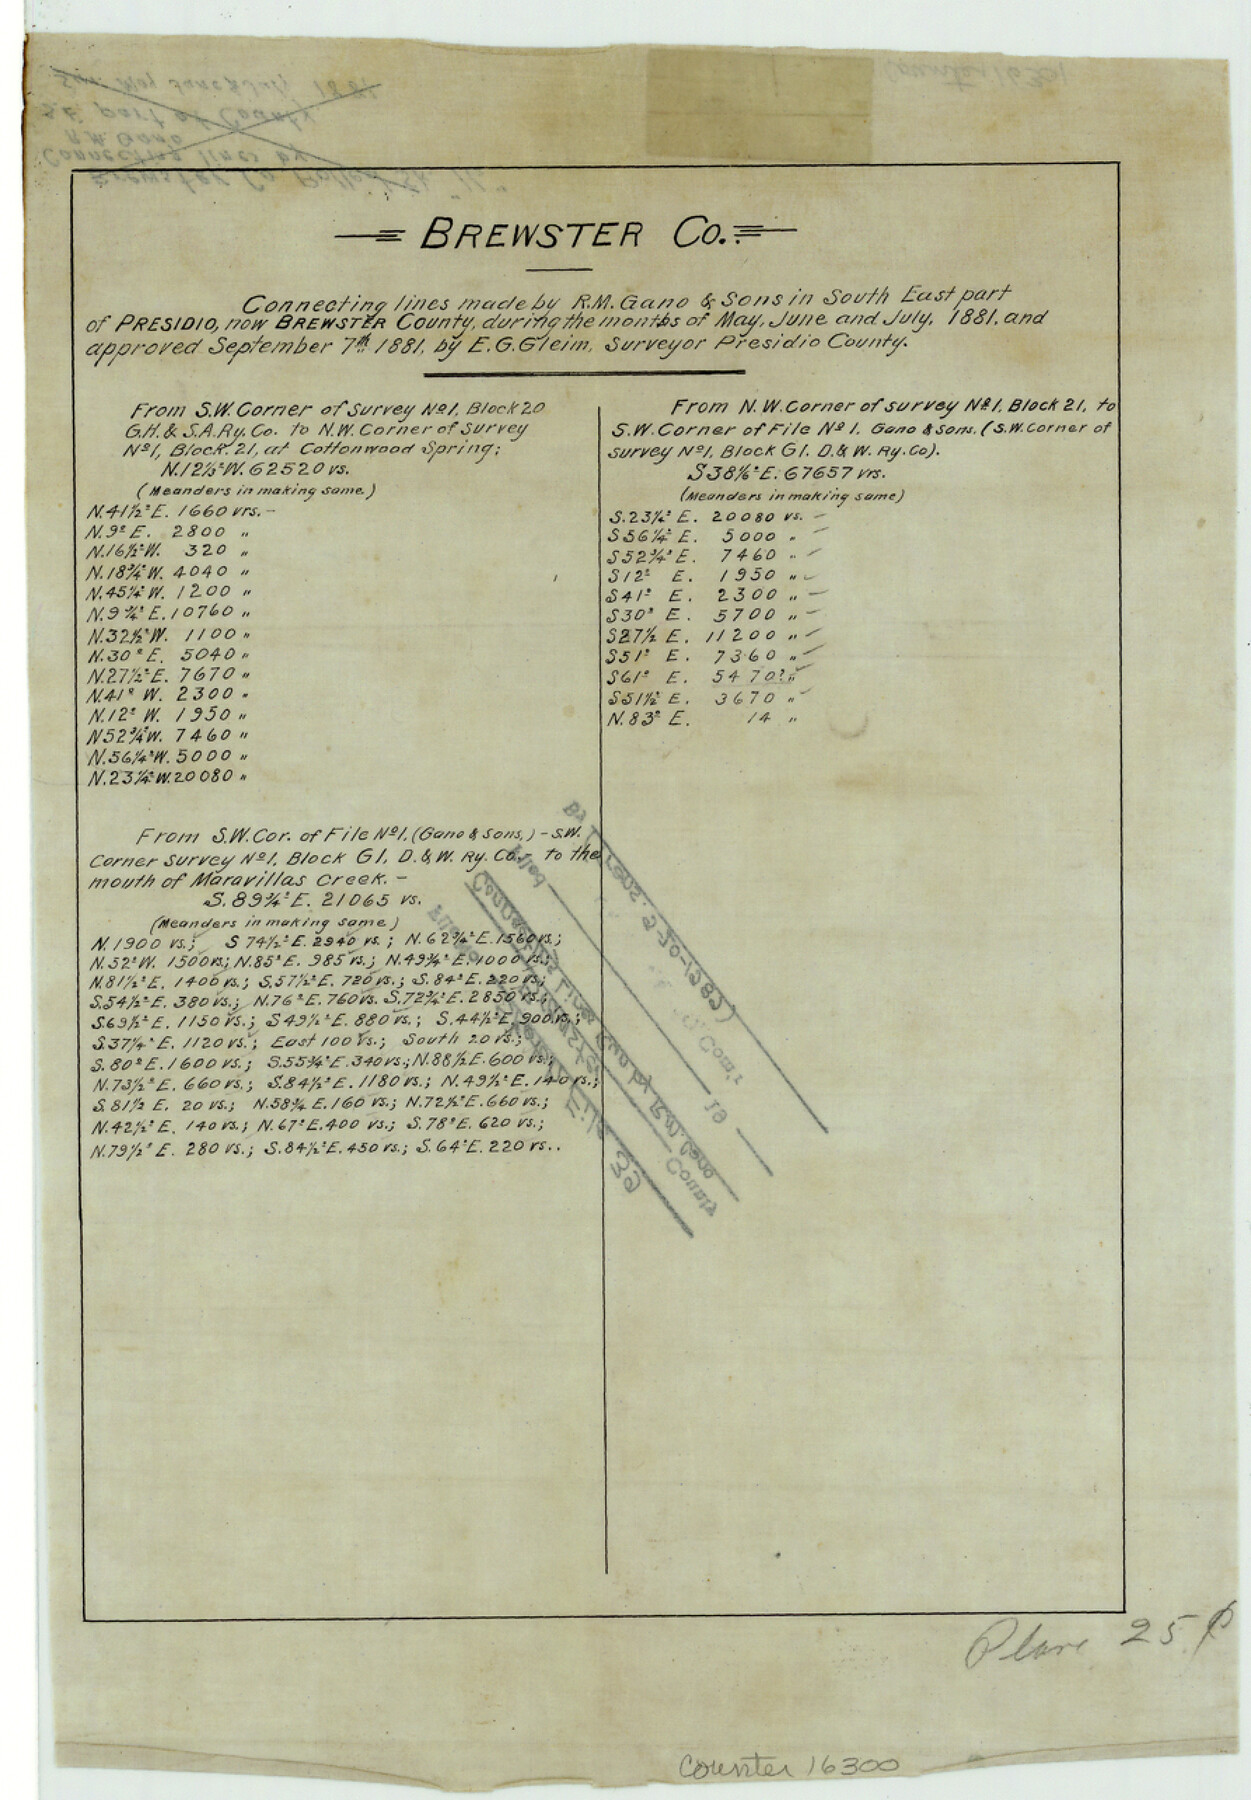 BREWSTER Co.
Connecting lines made by R.M. Gano & Sons in South East part
of PRESIDIO, now BREWSTER County, during the months of May, June and July, 1881, and
approved September 7th 1881, by E.G. Gleim, Surveyor Presidio County.
From S.W. Corner of Survey No 1, Block 20
G.H. & S.A. Ry. Co. to N.W. Corner of Survey
No 1, Block 21, at Cottonwood Spring;
N.12⅓°W. 62520 vs.
(Meanders in making same.)
N.41½°E. 1660 vrs. -
N.9° E. 2800 "
N.16½°W. 320 "
N.18¾°W. 4040 "
N.45¼°W. 1200 "
N.9¾° E. 10760 "
N.32½°W. 1100 "
N.30° E. 5040 "
N.27½°E. 7670 "
N.41° W. 2300 "
N.12° W. 1950 "
N52¾°W. 7460 "
N.56¼°W. 5000 "
N.23¼°W. 20080 "
From S.W. Cor. of File No 1, (Gano & Sons,) - S.W.
Corner Survey No 1, Block G1, D. & W. Ry. Co. - to the
mouth of Maravillas Creek. -
S. 89¾° E. 21065 vs.
(Meanders in making same)
N. 1900 vs.; S 74½° E. 2940 vs.; N. 62¾° E. 1560 vs.;
N. 52° W. 1500 vs; N. 85° E. 985 vs.; N. 49¾° E. 1000 vs.;
N. 81½° E. 1400 vs.; S. 57½° E. 720 vs.; S. 84° E. 220 vs;
S. 54½° E. 380 vs.; N. 76° E. 760 vs. S. 72¾° E. 2850 vs.;
S. 69½° E. 1150 vs.; S 49½° E. 880 vs.; S. 44½° E. 900 vs.;
S. 37¼° E. 1120 vs.; East 100 vs.; South 20 vs.;
S. 80° E. 1600 vs.; S. 55¾° E. 340 vs.; N. 88½ E. 600 vs.;
N. 73½° E. 660 vs.; S. 84½° E. 1180 vs.; N. 49½° E. 140 vs.;
S. 81½ E. 20 vs.; N. 58¾ E. 160 vs.; N. 72½° E. 660 vs.;
N. 42½° E. 140 vs.; N. 67° E. 400 vs.; S. 78° E. 620 vs.;
N. 79½° E. 280 vs.; S. 84½° E. 450 vs.; S. 64° E. 220 vs..
From N.W. Corner of survey No 1, Block 21, to
S.W. Corner of File No 1. Gano & Sons. (S.W. Corner of
survey No 1, Block G1. D. & W. Ry. Co).
S38⅙° E. 67657 vrs.
(Meanders in making same)
S. 23¼° E. 20080 vs. -
S 56¼° E. 5000 "
S 52¾° E. 7460 "
S 12° E. 1950 "
S 41° E. 2300 "
S 30° E. 5700 "
S 27½ E. 11200 "
S 51° E. 7360 "
S 61° E. 5470? "
S 51½ E. 3670 "
N. 83° E. 14 "
Connecting lines by
R.M. Gano
S.E. part of County
May June & July 1881
Filed 19
Connecting Lines Run by R.M. Gano
County
File 39
25 ¢
Counter 16300